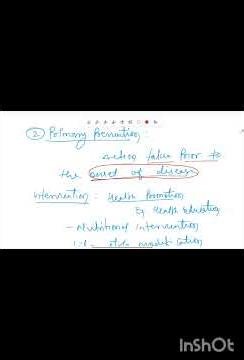 ② Primary Prevention :
action taken Prior to
the onset of disease
intervention : Health Promotion
Eg Health Education
- Nutritional intervention
style modification
InShOt